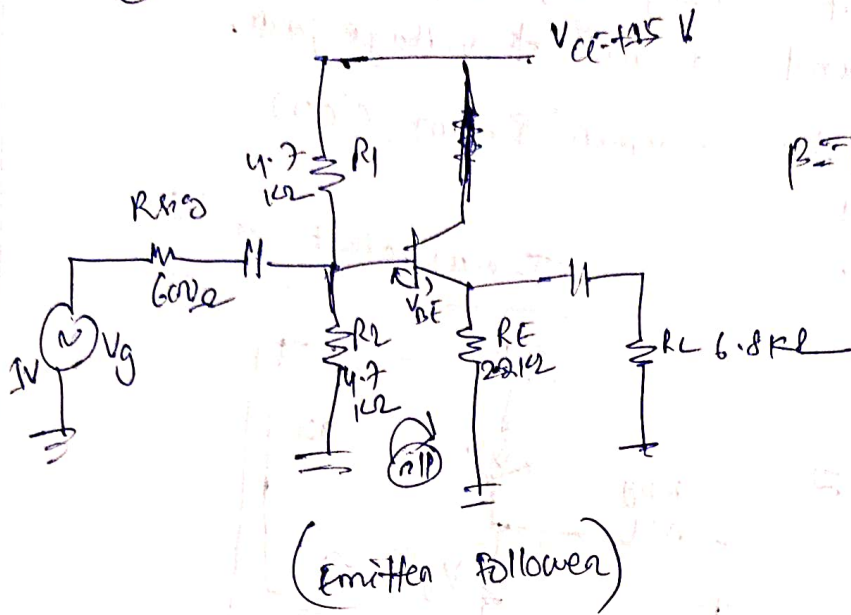 VCC=+15 V
4.7
KΩ
R1
β=
Rsig
600Ω
VBE
1V
Vg
R2
4.7
KΩ
RE
2.2KΩ
RL 6.8KΩ
i/p
(Emitter Follower)